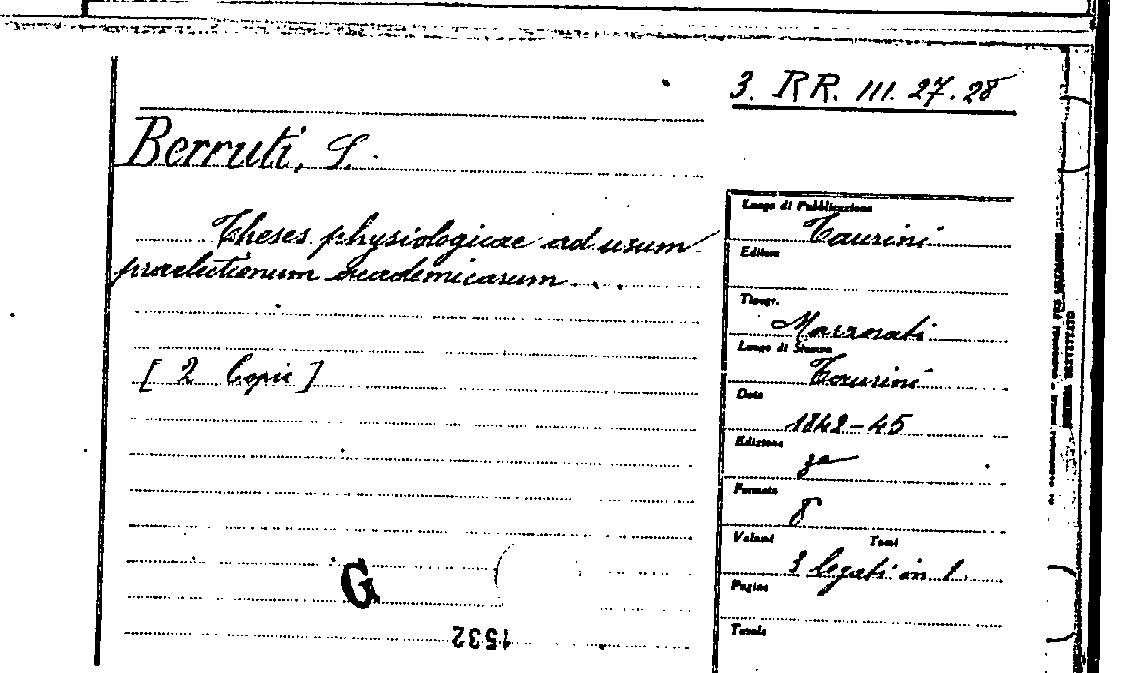 3. RR. III. 27.28
Berruti, S.
Theses physiologicae ad usum
praelectionum academicarum ...
[ 2 Copie ]
Luogo di Pubblicazione
Taurini
Editore
Tipogr.
Luogo di Stampa
Taurini
Data
1842-45
Edizione
3a
Formato
8
Volumi Tomi
3 legati in 1
Pagine
Tavole
G
1532